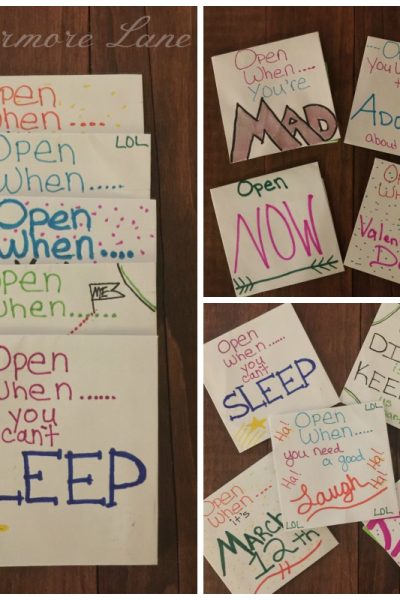 rmore Lane
Open
When.....
Open LOL
When.....
Open
When.....
Open
When.....
ME
Open
When......
you
can't
LEEP
Open
When....
You're
MAD
Open
When
you
Ado
about
Open
NOW
Open
When
Valen
Da
Open
When
you
can't
SLEEP
DI
is
KEE
Open LOL
When.....
you need
a good
Laugh
Ha! Ha!
Ha! Ha!
Open
When.....
it's
MARCH
12th
LOL